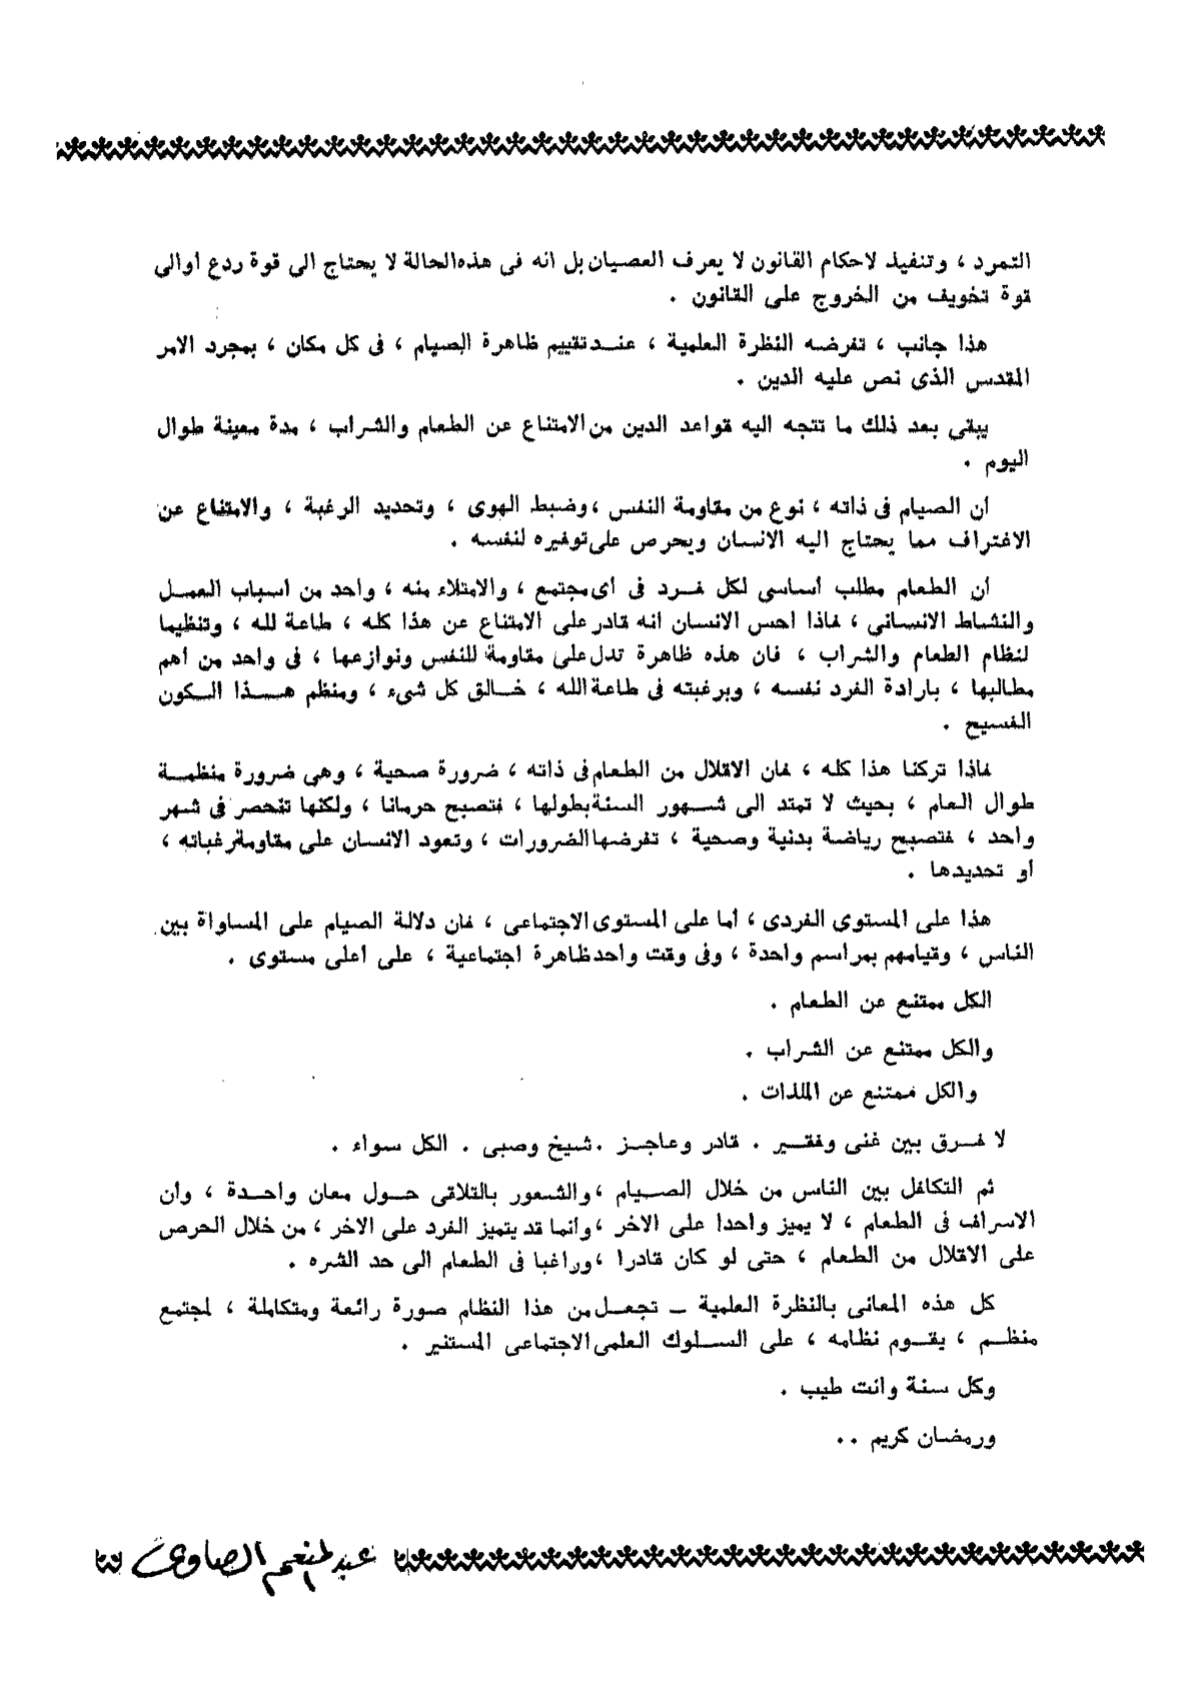 التمرد ، وتنفيذ لاحكام القانون لا يعرف العصيان بل انه فى هذه الحالة لا يحتاج الى قوة ردع او الى
قوة تخويف من الخروج على القانون .
هذا جانب ، تفرضه النظرة العلمية ، عند تقييم ظاهرة الصيام ، فى كل مكان ، بمجرد الامر
المقدس الذى نص عليه الدين .
يبقى بعد ذلك ما تتجه اليه قواعد الدين من الامتناع عن الطعام والشراب ، مدة معينة طوال
اليوم .
ان الصيام فى ذاته ، نوع من مقاومة النفس ، وضبط الهوى ، وتحديد الرغبة ، والامتناع عن
الاغتراف مما يحتاج اليه الانسان ويحرص على توفيره لنفسه .
أن الطعام مطلب أساسى لكل فرد فى أى مجتمع ، والامتلاء منه ، واحد من اسباب العمل
والنشاط الانسانى ، فاذا احس الانسان انه قادر على الامتناع عن هذا كله ، طاعة لله ، وتنظيما
لنظام الطعام والشراب ، فان هذه ظاهرة تدل على مقاومة للنفس ونوازعها ، فى واحد من اهم
مطالبها ، بارادة الفرد نفسه ، وبرغبته فى طاعة الله ، خالق كل شىء ، ومنظم هذا الكون
الفسيح .
فاذا تركنا هذا كله ، فان الاقلال من الطعام فى ذاته ، ضرورة صحية ، وهى ضرورة منظمة
طوال العام ، بحيث لا تمتد الى شهور السنة بطولها ، فتصبح حرمانا ، ولكنها تنحصر فى شهر
واحد ، فتصبح رياضة بدنية وصحية ، تفرضها الضرورات ، وتعود الانسان على مقاومة رغباته ،
أو تحديدها .
هذا على المستوى الفردى ، أما على المستوى الاجتماعى ، فان دلالة الصيام على المساواة بين
الناس ، وقيامهم بمراسم واحدة ، وفى وقت واحد ظاهرة اجتماعية ، على اعلى مستوى .
الكل ممتنع عن الطعام .
والكل ممتنع عن الشراب .
والكل ممتنع عن الملذات .
لا فرق بين غنى وفقير . قادر وعاجز . شيخ وصبى . الكل سواء .
ثم التكافل بين الناس من خلال الصيام ، والشعور بالتلاقى حول معان واحدة ، وأن
الاسراف فى الطعام ، لا يميز واحدا على الاخر ، وانما قد يتميز الفرد على الاخر ، من خلال الحرص
على الاقلال من الطعام ، حتى لو كان قادرا ، وراغبا فى الطعام الى حد الشره .
كل هذه المعانى بالنظرة العلمية – تجعل من هذا النظام صورة رائعة ومتكاملة ، لمجتمع
منظم ، يقوم نظامه ، على السلوك العلمى الاجتماعى المستنير .
وكل سنة وانت طيب .
ورمضان كريم . .
عبد المنعم الصاوى